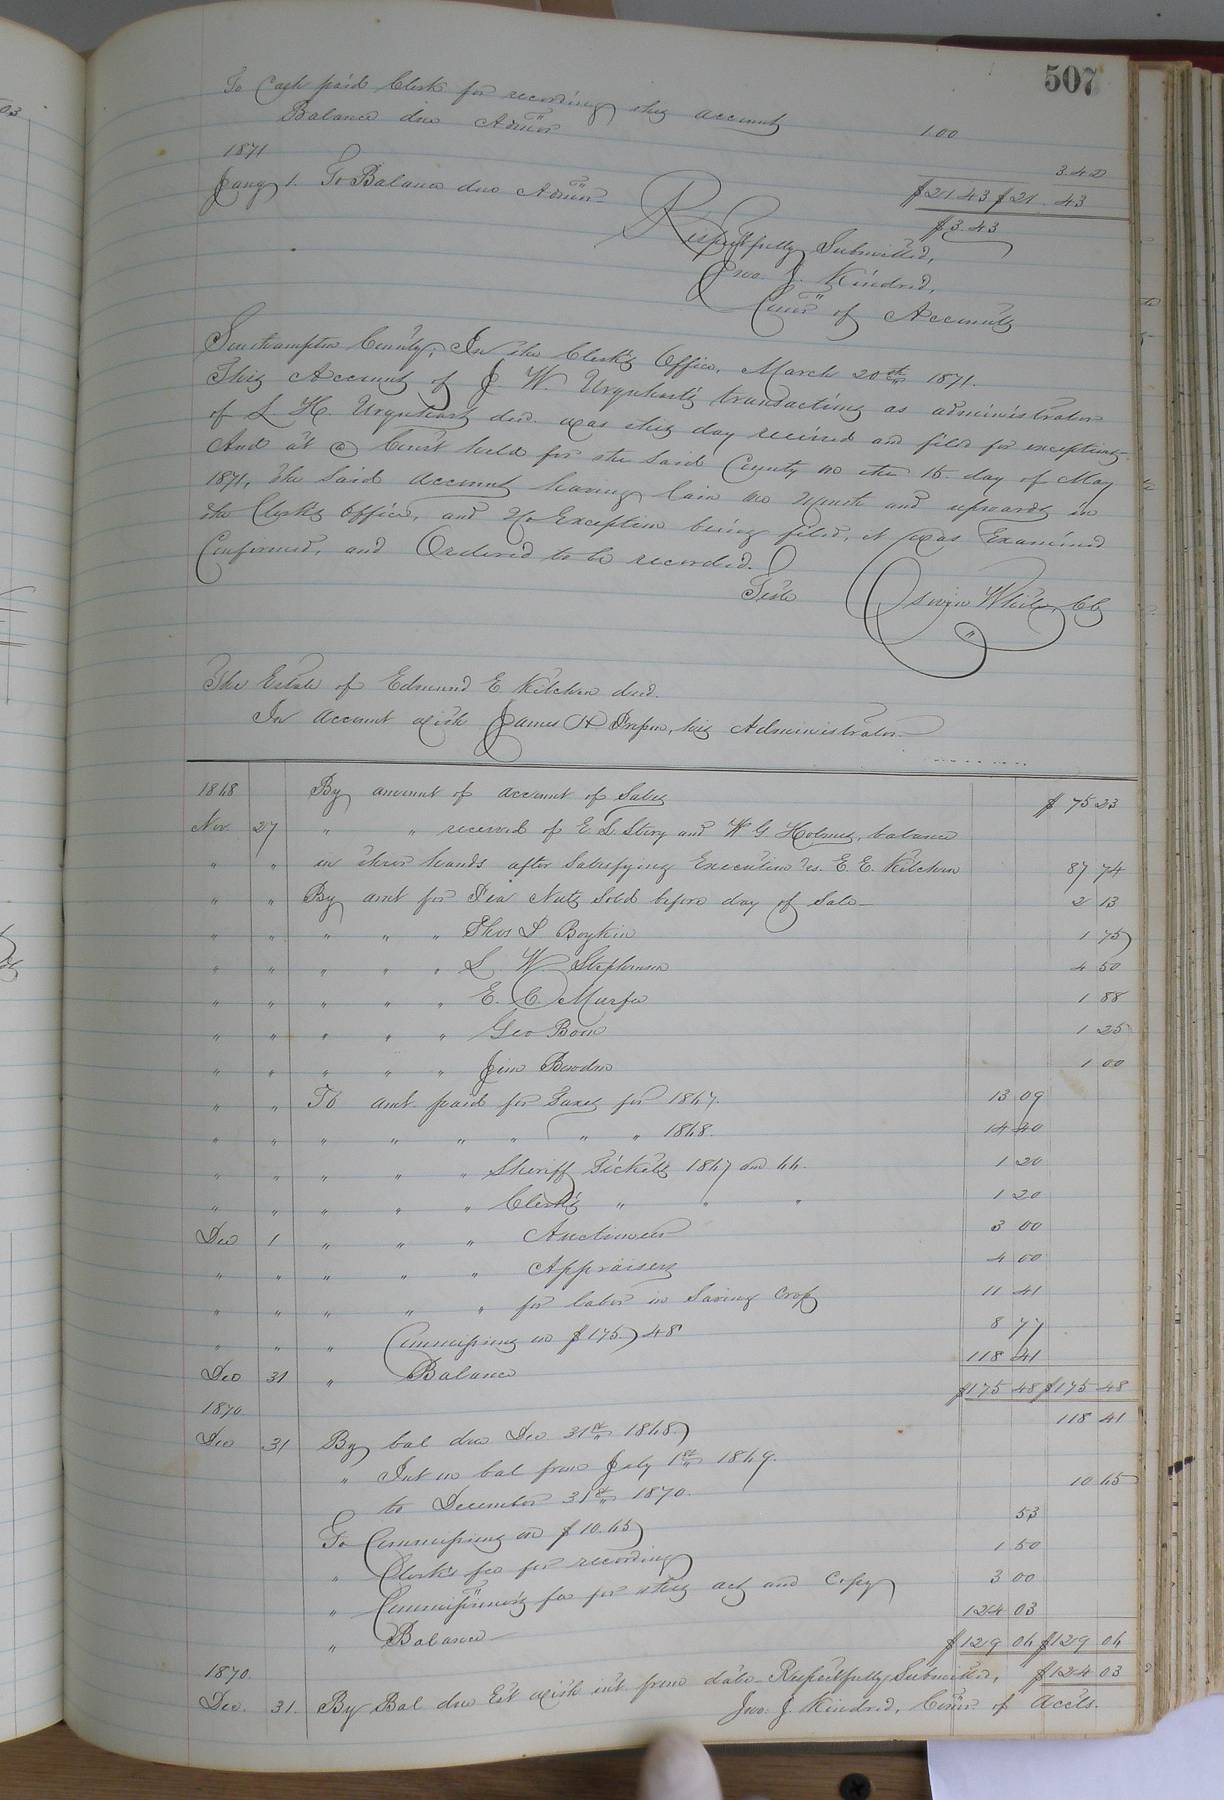 507
To Cash paid Clerk for recording this account 1.00
Balance due Admor 3.43
1871
Jany 1. To Balance due Admor $21.43 $21.43
$3.43
Respectfully Submitted,
Jno. J. Kindred,
Comr of Accounts
Southampton County, In the Clerk's Office, March 20th 1871.
This Account of J. W. Urquhart's transactions as administrator
of L. H. Urquhart decd. was this day received and filed for exceptions
And at a Court held for the Said County on the 15 day of May
1871, the Said account having lain one Month and upwards in
the Clerk's office, and No Exception being filed, it was Examined
Confirmed, and Ordered to be recorded.
Teste Oswin White, CC
The Estate of Edmund E Kitchen decd.
In account with James H Drapen, his Administrator
1868 By amount of account of Sales $ 75 23
Nov. 27 " " received of E. L. Story and W G. Holmes, balance
" " in their hands after satisfying Execution vs. E. E. Kitchen 87 74
" " By amt for Pea Nuts Sold before day of Sale 2 13
" " " " " Thos D Boykin 1 75
" " " " " L W Stephenson 4 50
" " " " " E. C. Murfee 1 88
" " " " " Geo Boon 1 25
" " " " " Jim Bowden 1 00
" " To amt. paid for Taxes for 1867. 13 09
" " " " " " " " 1868. 14 40
" " " " " Sheriff Tickets 1867 and 66. 1 20
" " " " " Clerk's " " " 1 20
Dec 1 " " " Auctioneer 3 00
" " " " " Appraisers 4 00
" " " " " for labor in Saving Crop 11 41
" " " Commissions on $175.48 8 77
Dec 31 " Balance 118 41
$175 48 $175 48
1870.
Dec 31 By bal due Dec 31st 1868 118 41
" Int on bal from July 1st 1869.
to December 31st 1870. 10 65
To Commissions on $10.65 53
" Clerk's fee for recording 1 50
" Commissioner's fee for this act and Copy 3 00
" Balance 124 03
$129 06 $129 06
1870. $124 03
Dec. 31. By Bal due Est with int. from date Respectfully Submitted,
Jno. J. Kindred, Comr. of Accts.